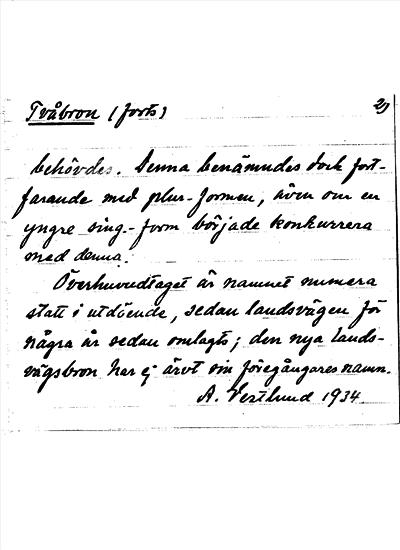 Tvåbron (forts) 2)
behövdes. Denna benämndes dock fort-
farande med plur-formen, även om en
yngre sing.-form började konkurrera
med denna.
Överhuvudtaget är namnet numera
statt i utdöende, sedan landsvägen för
några år sedan omlagts; den nya lands-
vägsbron har ej ärvt sin föregångares namn.
A. Vestlund 1934